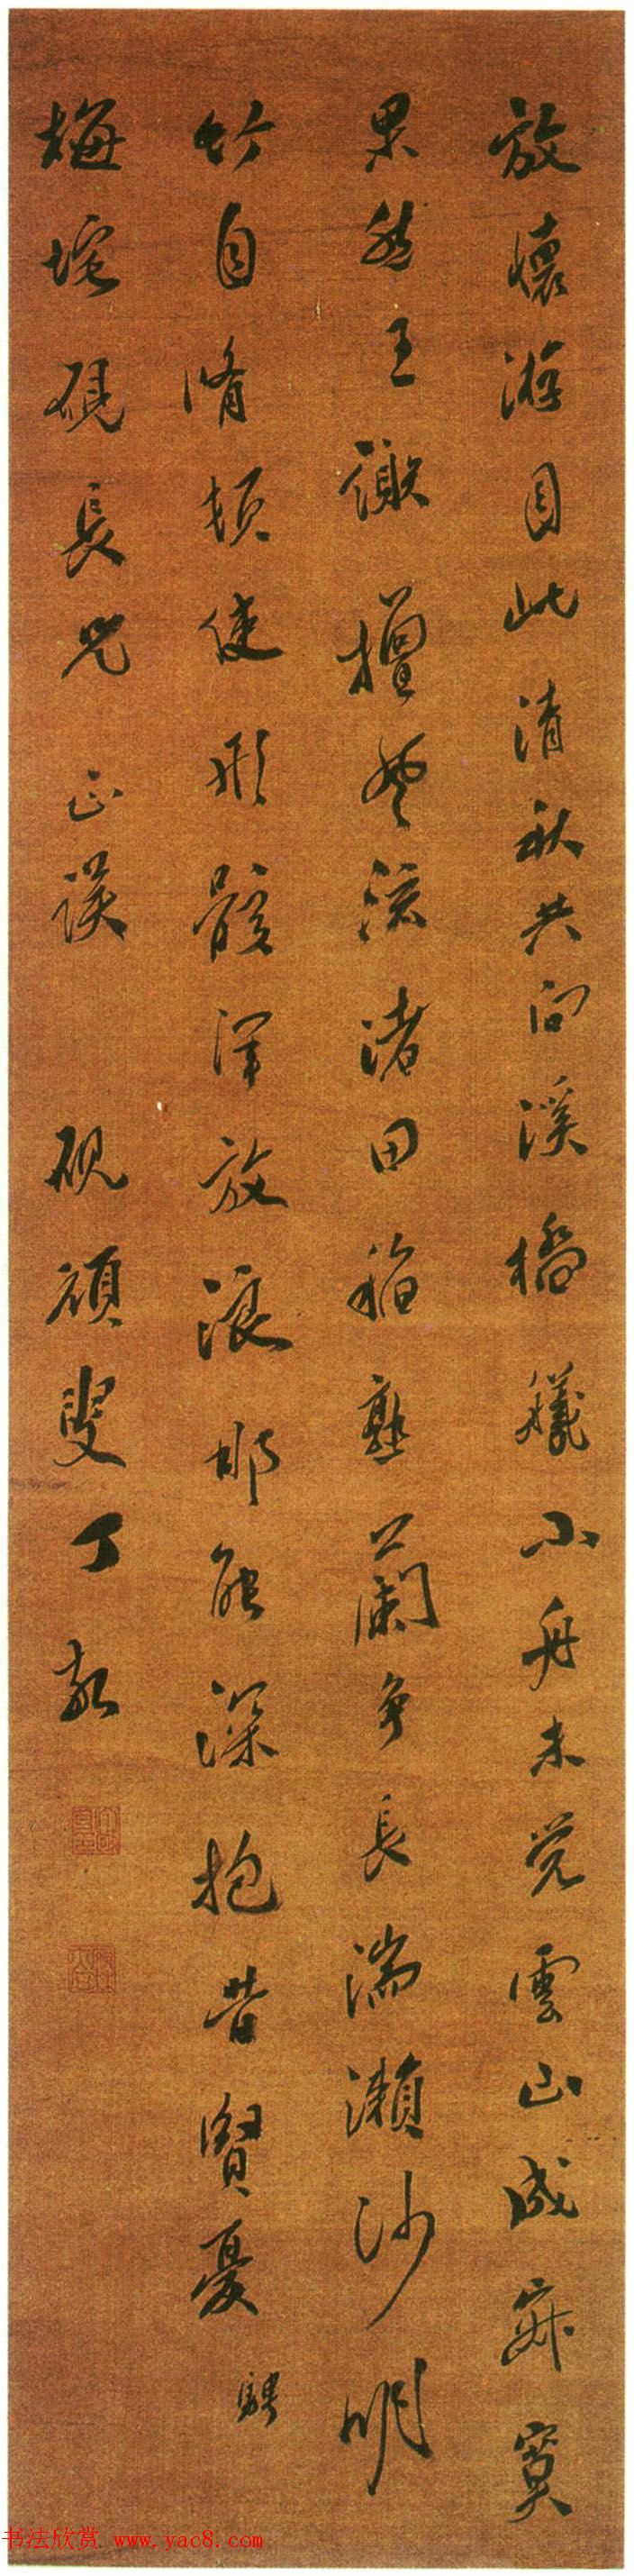 放懷游目此清秋共向溪橋艤小舟未覺雲山成寂寞
果然王謝擅風流渚田稻熟蘭爭長湍瀨沙明
竹自脩頓使形骸渾放浪那能深抱昔賢憂 騁
梅垞硯長兄 正 硯頑叟丁敬
书法欣赏 www.yac8.com